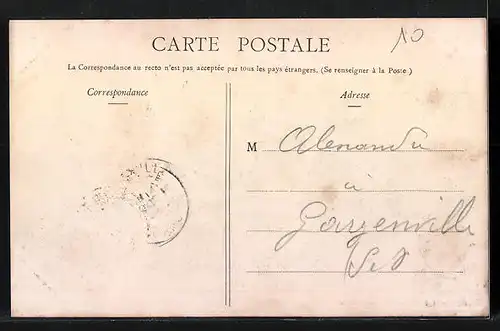 10
CARTE POSTALE
La Correspondance au recto n'est pas acceptée par tous les pays étrangers. (Se renseigner à la Poste.)
Correspondance
Adresse
M Alexandre
à
Gargenville
S&O